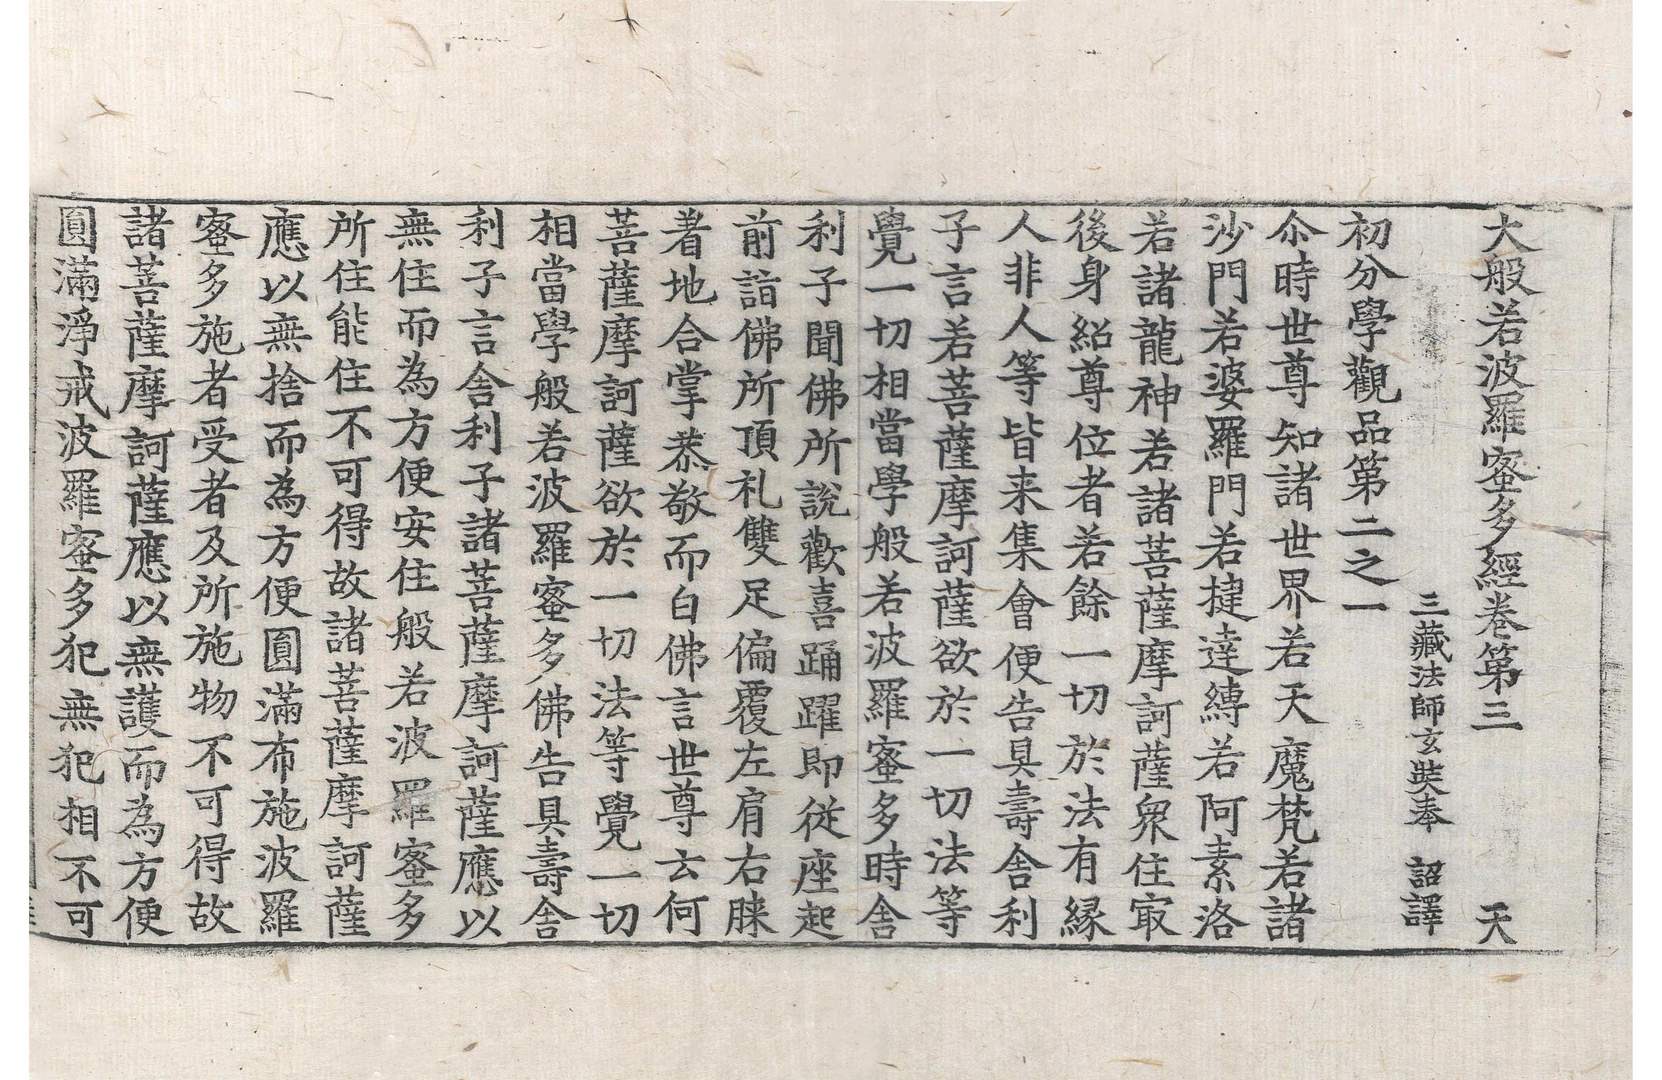 大般若波羅蜜多經卷第三 天
三藏法師玄奘奉 詔譯
初分學觀品第二之一
尒時世尊知諸世界若天魔梵若諸
沙門若婆羅門若揵達縛若阿素洛
若諸龍神若諸菩薩摩訶薩衆住㝡
後身紹尊位者若餘一切於法有縁
人非人等皆来集會便告具壽舎利
子言若菩薩摩訶薩欲於一切法等
覺一切相當學般若波羅蜜多時舎
利子聞佛所說歡喜踊躍即從座起
前詣佛所頂礼雙足偏覆左肩右膝
著地合掌恭敬而白佛言世尊云何
菩薩摩訶薩欲於一切法等覺一切
相當學般若波羅蜜多佛告具壽舎
利子言舎利子諸菩薩摩訶薩應以
無住而為方便安住般若波羅蜜多
所住能住不可得故諸菩薩摩訶薩
應以無捨而為方便圓滿布施波羅
蜜多施者受者及所施物不可得故
諸菩薩摩訶薩應以無護而為方便
圓滿淨戒波羅蜜多犯無犯相不可